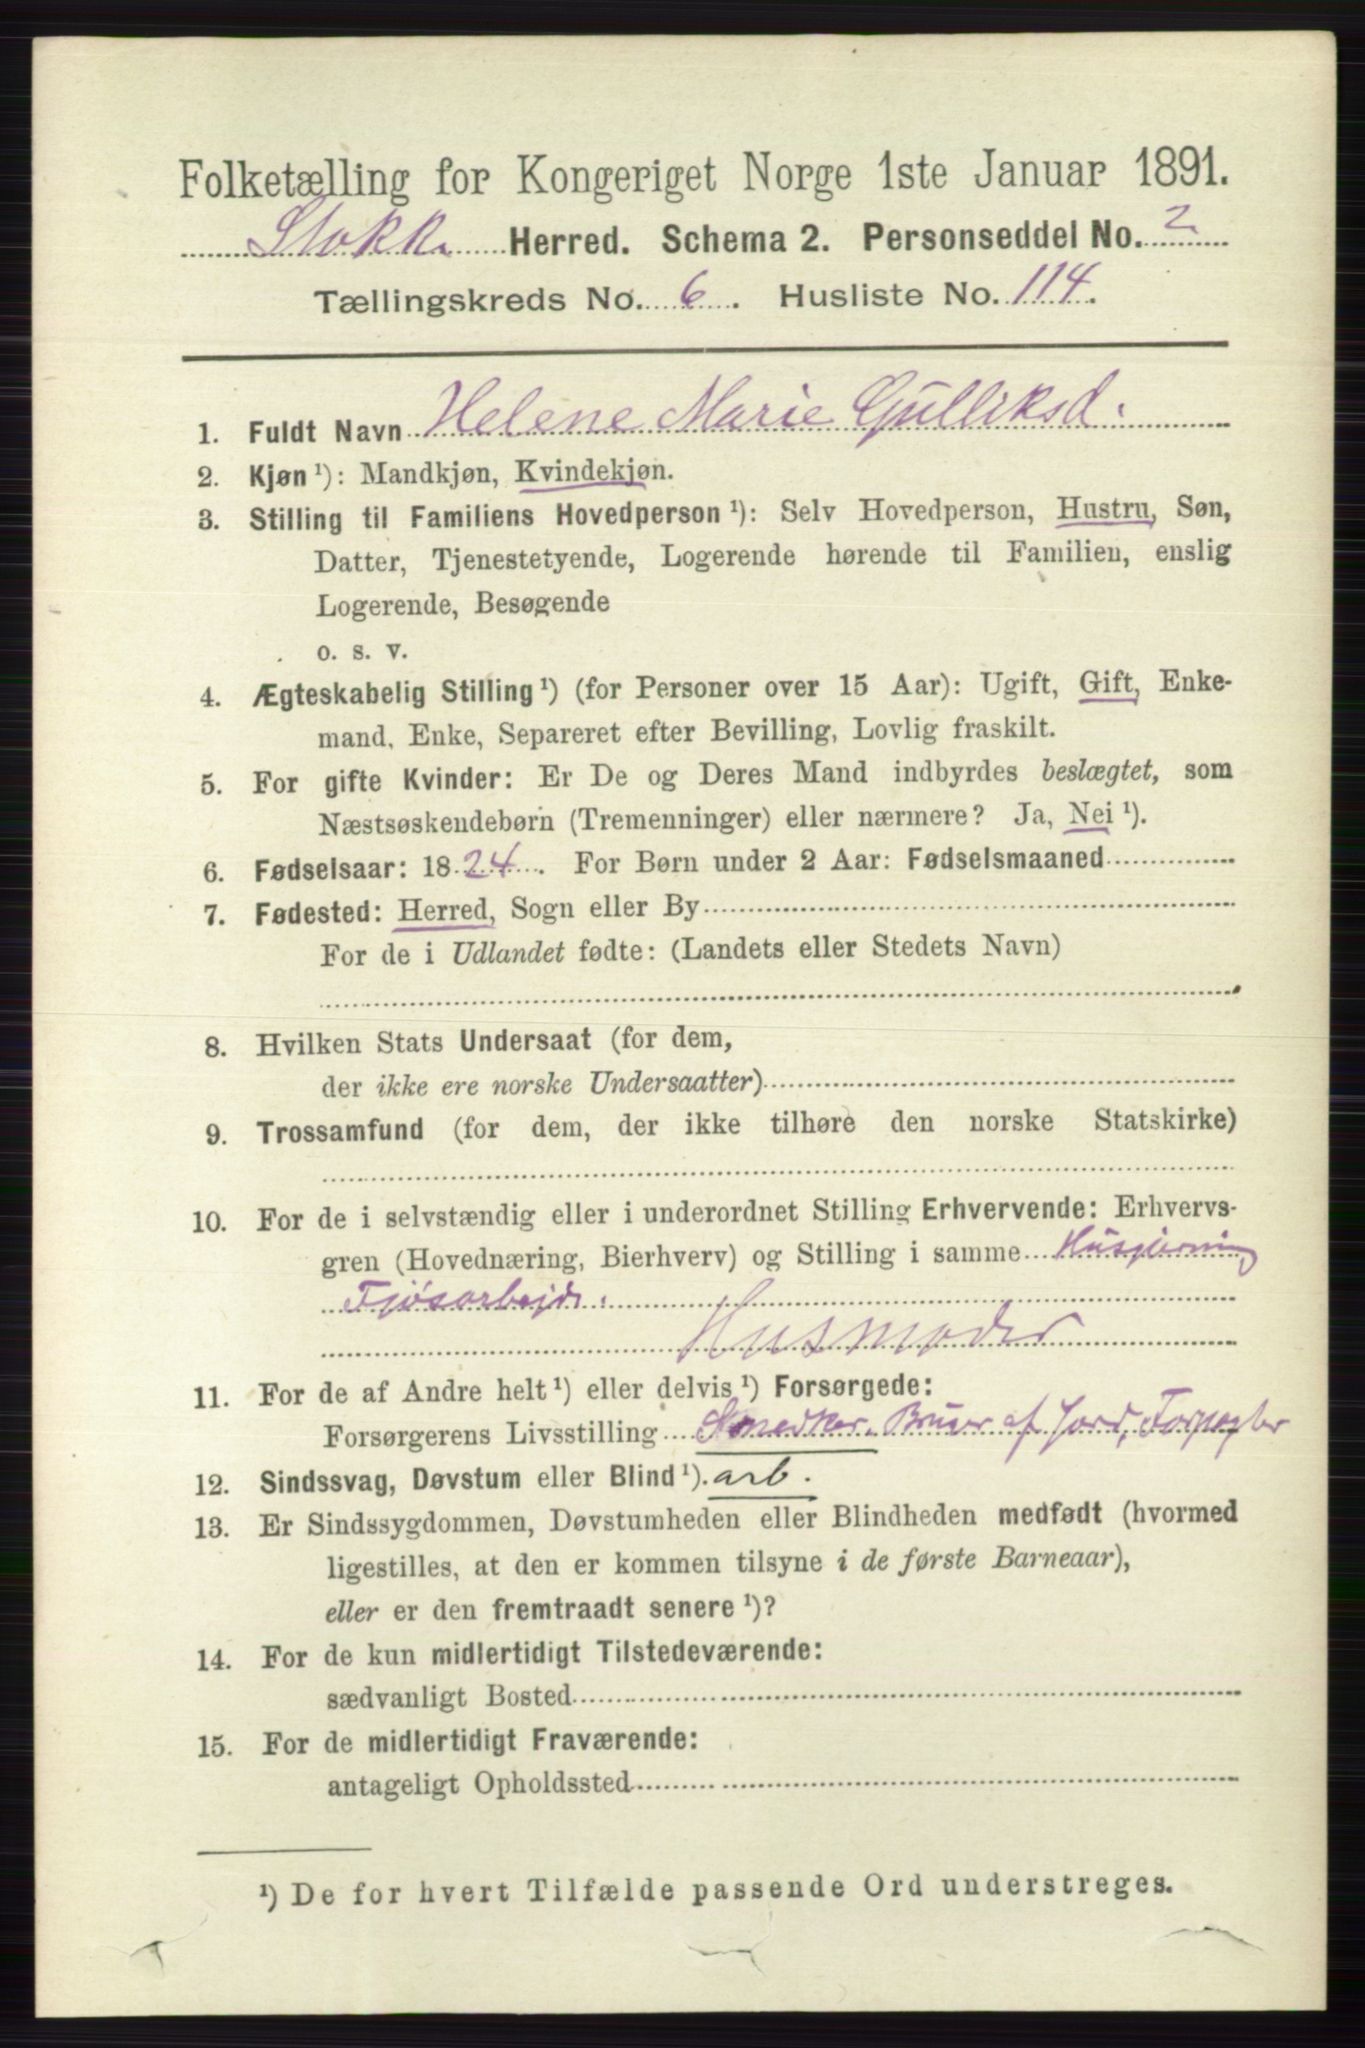 Folketælling for Kongeriget Norge 1ste Januar 1891.
Stokke Herred. Schema 2. Personseddel No. 2
Tællingskreds No. 6. Husliste No. 114.
1. Fuldt Navn Helene Marie Gulliksd.
2. Kjøn ¹): Mandkjøn, Kvindekjøn.
3. Stilling til Familiens Hovedperson ¹): Selv Hovedperson, Hustru, Søn,
Datter, Tjenestetyende, Logerende hørende til Familien, enslig
Logerende, Besøgende
o. s. v.
4. Ægteskabelig Stilling ¹) (for Personer over 15 Aar): Ugift, Gift, Enke-
mand, Enke, Separeret efter Bevilling, Lovlig fraskilt.
5. For gifte Kvinder: Er De og Deres Mand indbyrdes beslægtet, som
Næstsøskendebørn (Tremenninger) eller nærmere? Ja, Nei ¹).
6. Fødselsaar: 1824. For Børn under 2 Aar: Fødselsmaaned
7. Fødested: Herred, Sogn eller By
For de i Udlandet fødte: (Landets eller Stedets Navn)
8. Hvilken Stats Undersaat (for dem,
der ikke ere norske Undersaatter)
9. Trossamfund (for dem, der ikke tilhøre den norske Statskirke)
10. For de i selvstændig eller i underordnet Stilling Erhvervende: Erhvervs-
gren (Hovednæring, Bierhverv) og Stilling i samme Husgjerning
Fjøsarbejde.
Husmoder
11. For de af Andre helt ¹) eller delvis ¹) Forsørgede:
Forsørgerens Livsstilling Snedker. Bruer af Jord, Forpagter
12. Sindssvag, Døvstum eller Blind ¹). arb.
13. Er Sindssygdommen, Døvstumheden eller Blindheden medfødt (hvormed
ligestilles, at den er kommen tilsyne i de første Barneaar),
eller er den fremtraadt senere ¹)?
14. For de kun midlertidigt Tilstedeværende:
sædvanligt Bosted
15. For de midlertidigt Fraværende:
antageligt Opholdssted
¹) De for hvert Tilfælde passende Ord understreges.